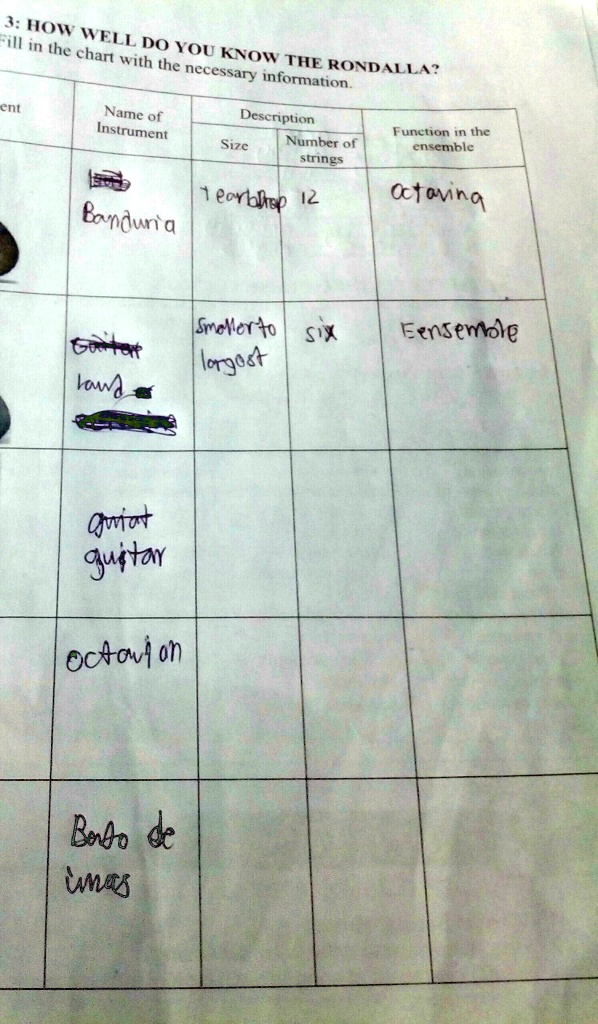 3: HOW WELL DO YOU KNOW THE RONDALLA?
Fill in the chart with the necessary information.
ent
Name of
Instrument
Description
Size
Number of
strings
Function in the
ensemble
Banduria
Teardrop
12
Octaving
Guitar
laud
Smaller to
largest
six
Eensemble
guiat
guitar
octavion